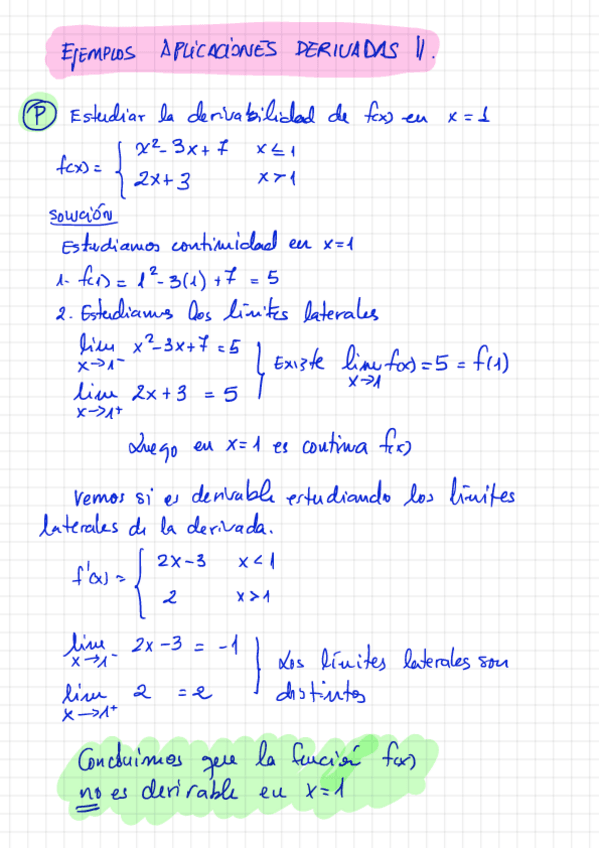 EJEMPLOS APLICACIONES DERIVADAS II.
P Estudiar la derivabilidad de f(x) en x = 1
f(x) = { x² - 3x + 7 x ≤ 1
2x + 3 x > 1
SOLUCIÓN
Estudiamos continuidad en x=1
1- f(1) = 1² - 3(1) + 7 = 5
2. Estudiamos los límites laterales
lim x→1⁻ x² - 3x + 7 = 5 } Existe lim x→1 f(x) = 5 = f(1)
lim x→1⁺ 2x + 3 = 5
Luego en x=1 es continua f(x)
Vemos si es derivable estudiando los límites
laterales de la derivada.
f'(x) = { 2x - 3 x < 1
2 x > 1
lim x→1⁻ 2x - 3 = -1 } Los límites laterales son
lim x→1⁺ 2 = 2 distintos
Concluimos que la función f(x)
no es derivable en x=1